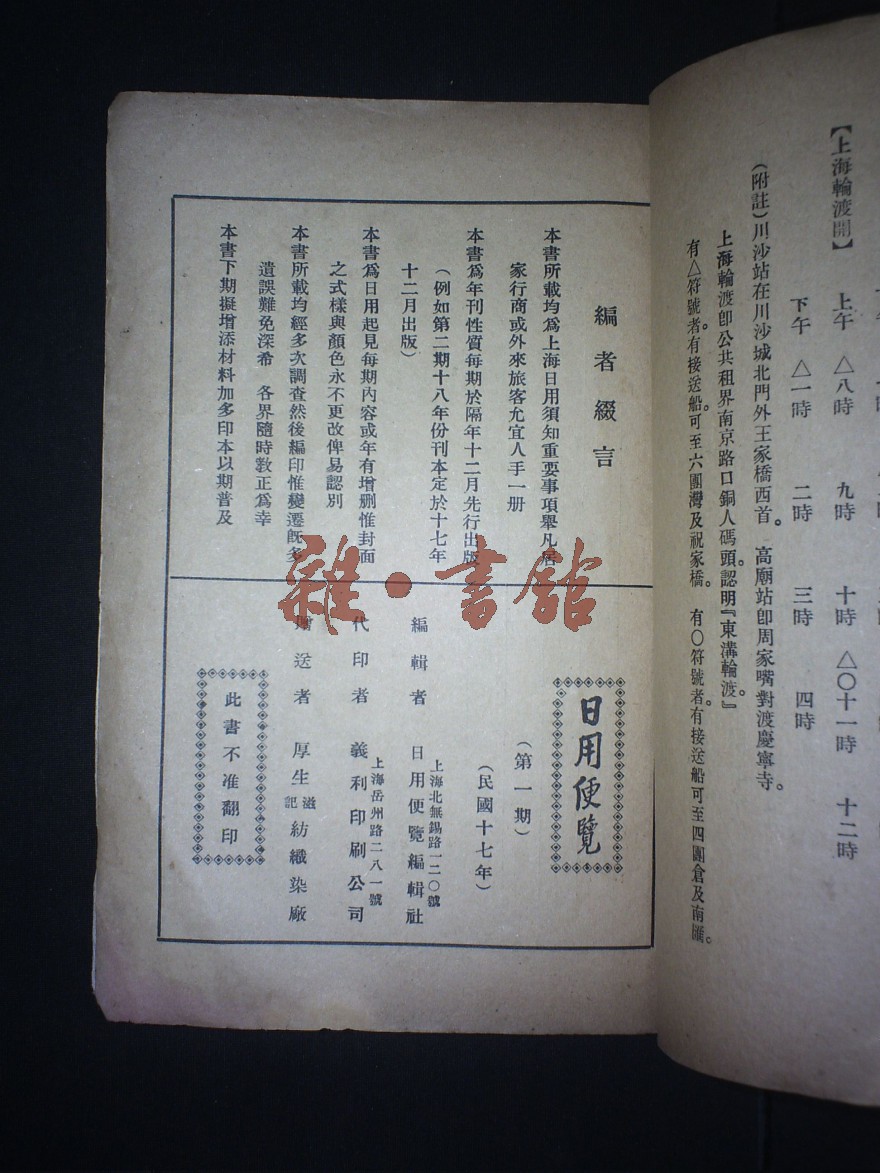 【上海輪渡開】
上午 △八時 九時 十時 △〇十一時 十二時
下午 △一時 二時 三時 四時
(附註)川沙站在川沙城北門外王家橋西首。高廟站卽周家嘴對渡慶寧寺。
上海輪渡卽公共租界南京路口銅人碼頭。認明『東溝輪渡。』
有△符號者。有接送船。可至六團灣及祝家橋。有〇符號者。有接送船可至四團倉及南匯。
編者綴言
本書所載均爲上海日用須知重要事項舉凡居
家行商或外來旅客允宜人手一册
本書爲年刊性質每期於隔年十二月先行出版
(例如第二期十八年份刊本定於十七年
十二月出版)
本書爲日用起見每期內容或年有增删惟封面
之式樣與顏色永不更改俾易認別
本書所載均經多次調查然後編印惟變遷旣多
遺誤難免深希 各界隨時敎正爲幸
本書下期擬增添材料加多印本以期普及
日用便覽
(第一期)
(民國十七年)
上海北無錫路一二〇號
編輯者 日用便覽編輯社
上海岳州路二八一號
代印者 義利印刷公司
贈送者 厚生滋記紡織染廠
此書不准翻印
雜·書館